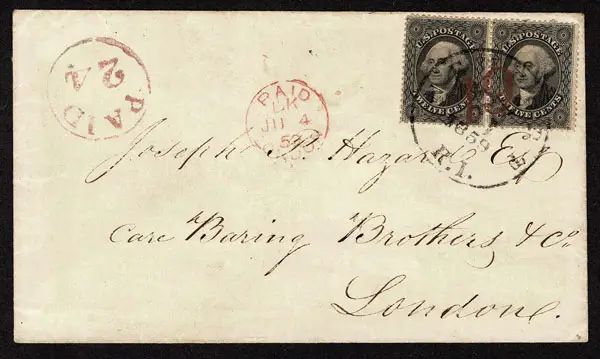 U.S. POSTAGE
TWELVE CENTS
U.S. POSTAGE
TWELVE CENTS
19
1859
R.I.
PAID
PAID
LK
4
59
Joseph P. Hazard Esq
Care Baring Brothers, & Co.
London.